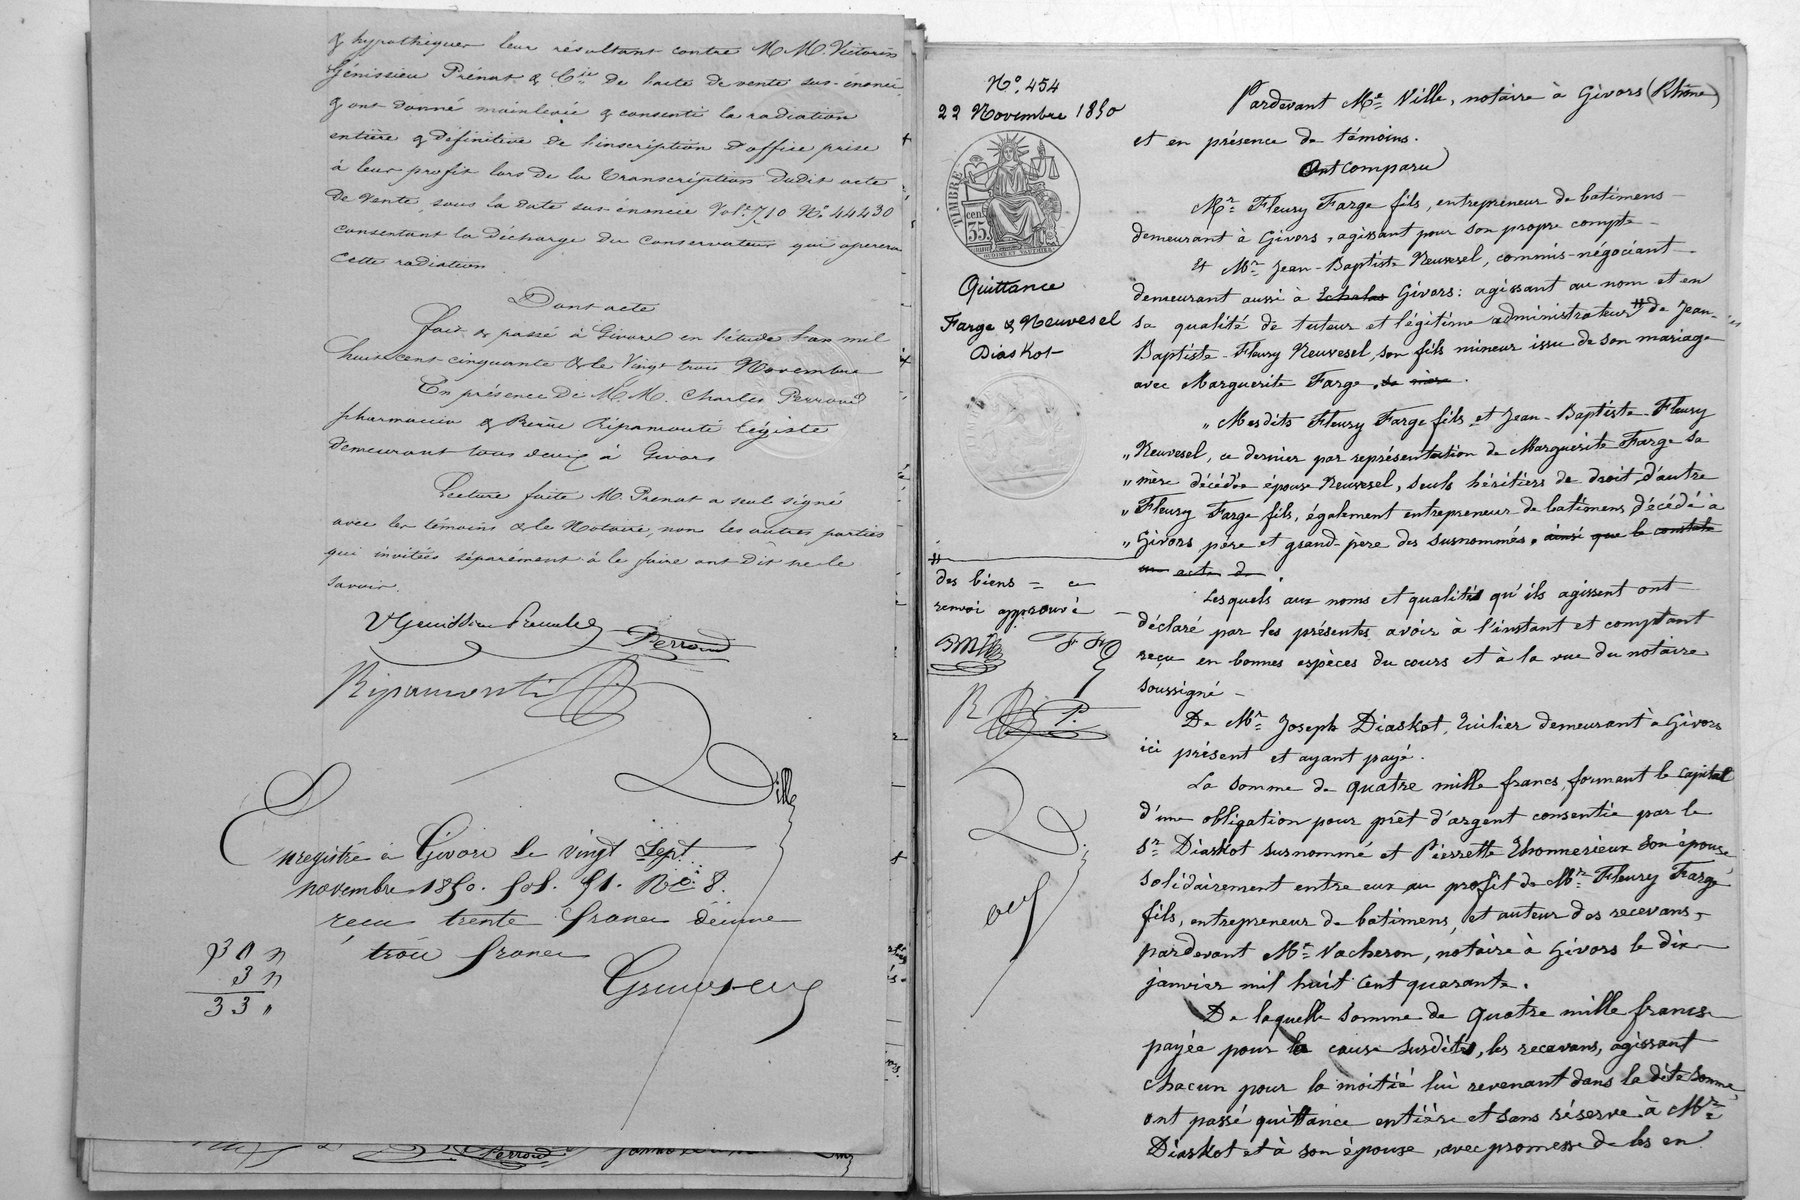 & hypothèques leur résultant contre M.M. Victorin
Génissieu Prénat & Cie de l'acte de vente sus-énoncé
& ont donné mainlevée & consenti la radiation
entière & définitive de l'inscription d'office prise
à leur profit lors de la transcription dudit acte
de vente, sous la date sus-énoncée Vol. 710 No. 44430
consentant la décharge du conservateur qui opérera
cette radiation
Dont acte
Fait & passé à Givors en l'étude l'an mil
huit cent cinquante & le Vingt trois Novembre
En présence de M.M. Charles Perroud
pharmacien & Ripamonti légiste
demeurant tous deux à Givors
Lecture faite M. Prenat a seul signé
avec les témoins & le Notaire, non les autres parties
qui invitées séparément à le faire ont dit ne le
savoir.
Perroud
Ripamonti
Ville
Enregistré à Givors le vingt Sept
novembre 1850. fol. 51. Ro c. 8.
reçu trente francs décime
trois francs
30 "
3 "
33 "
Perroud
No. 454
22 Novembre 1850
TIMBRE
35 cen.
Quittance
Farge & Neuvesel
Diaskot
des biens = ce
renvoi approuvé
Pardevant Me Ville, notaire à Givors (Rhône)
et en présence de témoins.
Ont Comparu
Mr. Fleury Farge fils, entrepreneur de batimens
demeurant à Givors, agissant pour son propre compte
Et Mr. Jean-Baptiste Neuvesel, commis-négociant
demeurant aussi à Echalas Givors: agissant au nom et en
sa qualité de tuteur et légitime administrateur # de Jean-
Baptiste-Fleury Neuvesel, son fils mineur issu de son mariage
avec Marguerite Farge, sa mère.
" Mesdits Fleury Farge fils et Jean-Baptiste-Fleury
" Neuvesel, ce dernier par représentation de Marguerite Farge sa
" mère décédée épouse Neuvesel, seuls héritiers de droit d'autre
" Fleury Farge fils, également entrepreneur de batimens décédé à
" Givors père et grand-père des susnommés, ainsi que le constate
un acte de
Lesquels aux noms et qualités qu'ils agissent ont
déclaré par les présentes avoir à l'instant et comptant
reçu en bonnes espèces du cours et à la vue du notaire
soussigné
De Mr. Joseph Diaskot, huilier demeurant à Givors
ici présent et ayant payé.
La somme de quatre mille francs, formant le capital
d'une obligation pour prêt d'argent consentie par le
Sr. Diaskot susnommé et Pierrette Thonnerieux son épouse
solidairement entre eux au profit de Mr. Fleury Farge
fils, entrepreneur de batimens, et auteur des recevans,
pardevant Me Vacheron, notaire à Givors le dix
janvier mil huit cent quarante.
De laquelle somme de quatre mille francs
payée pour la cause susdite, les recevans, agissant
chacun pour la moitié lui revenant dans la dite somme,
ont passé quittance entière et sans réserve à Mr.
Diaskot et à son épouse, avec promesse de les en